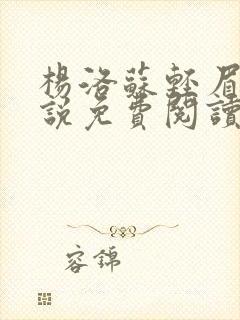 楊洛蘇輕眉
說免費閱讀
容錦